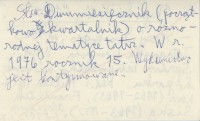 Dwumiesięcznik (począt-
kowo kwartalnik) o różno-
rodnej tematyce tatrz. W r.
1976 rocznik 15. Wydawnictwo
jest kontynuowane.